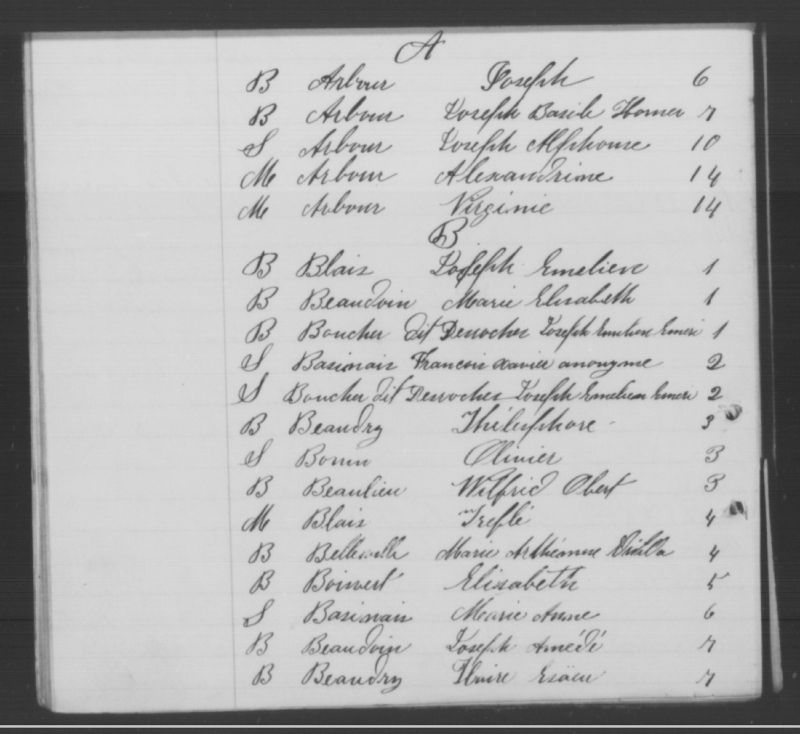 A
B Arbour Joseph 6
B Arbour Joseph Basile Homer 7
S Arbour Joseph Alphonse 10
M Arbour Alexandrine 14
M Arbour Virginie 14
B
B Blais Joseph Emelien 1
B Beaudoin Marie Elisabeth 1
B Boucher dit Desrocher Joseph Emelien Emeri 1
S Basinais Francois Xavier anonyme 2
S Boucher dit Desrocher Joseph Emelien Emeri 2
B Beaudry Thélesphore 3
S Bonin Olivier 3
B Beaulieu Wilfrid Obert 3
M Blais Trefflé 4
B Belleville Marie 4
B Boisvert Elisabeth 5
S Basinais Marie Anne 6
B Beaudoin Joseph Amédé 7
B Beaudry 7